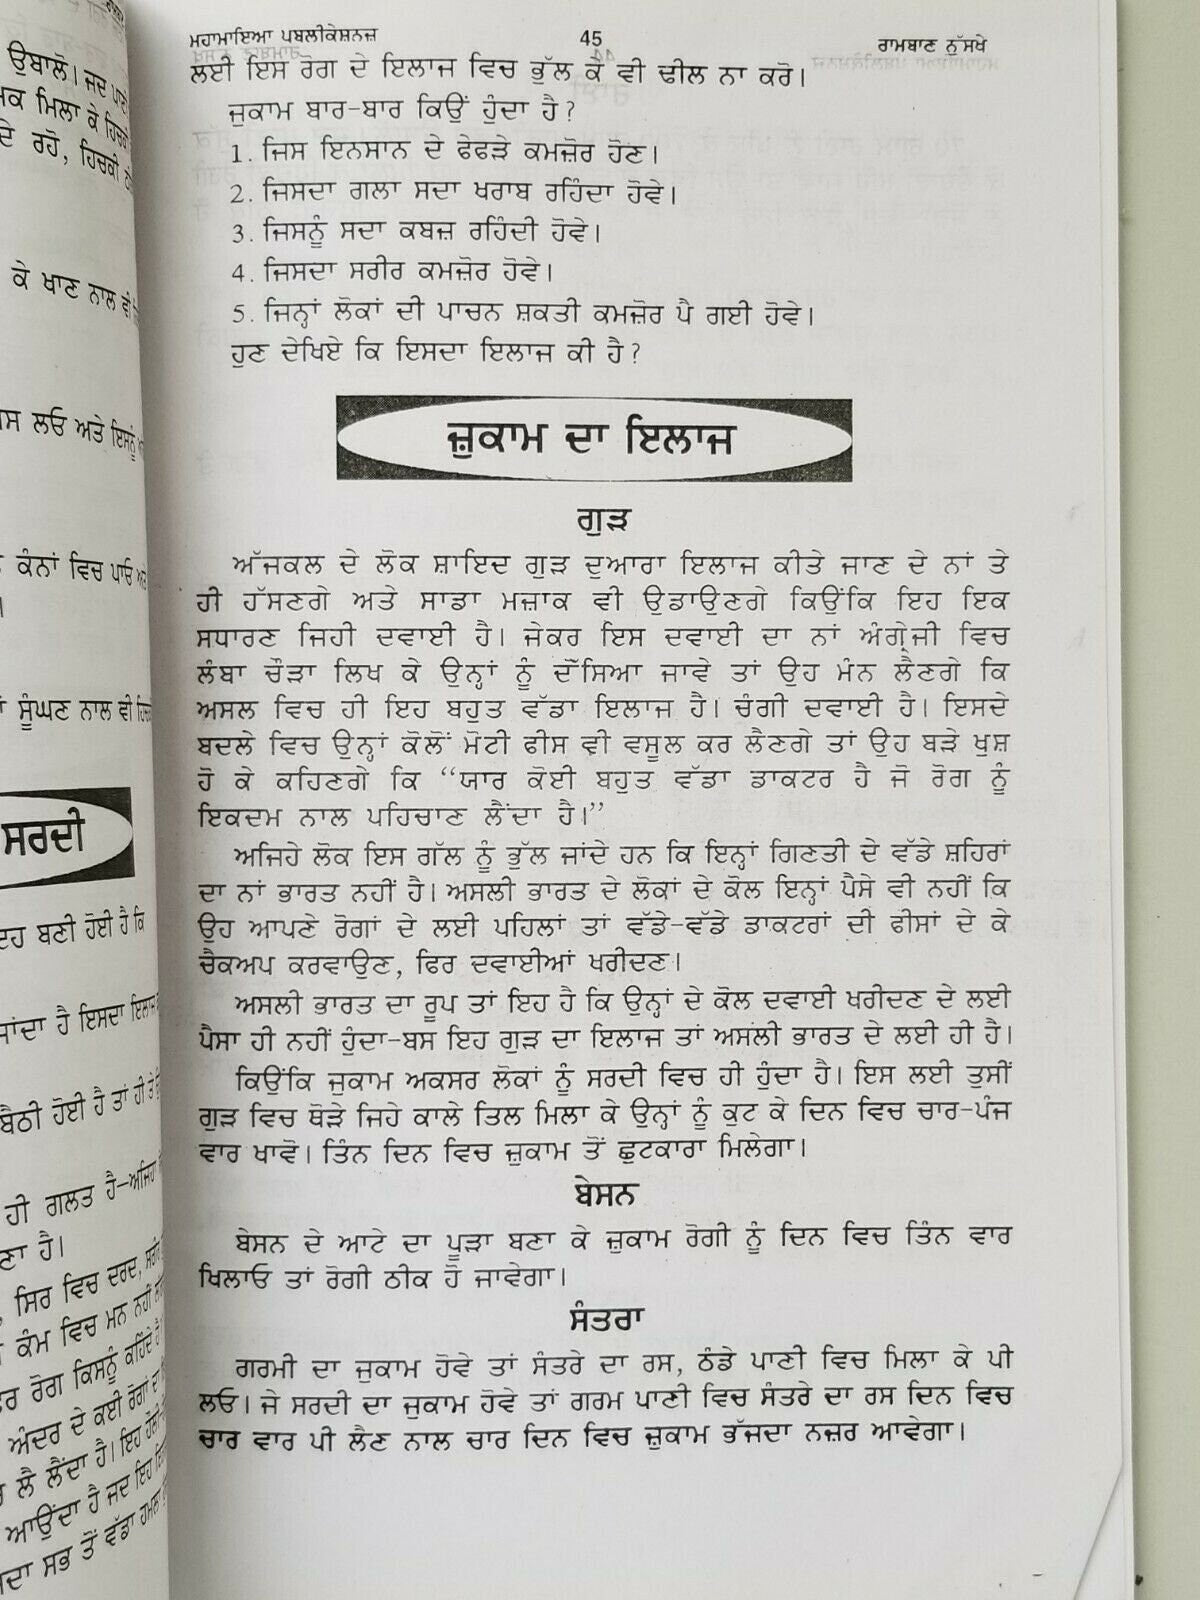 ਉਬਾਲੋ। ਜਦ ਪਾਣੀ
ਮਿਲਾ ਕੇ ਹਿਚਕੀ
ਦੇ ਰਹੋ, ਹਿਚਕੀ
ਕੇ ਖਾਣ ਨਾਲ ਵੀ
ਲਓ ਅਤੇ ਇਸਨੂੰ
ਕੰਨਾਂ ਵਿਚ ਪਾਓ
ਸੁੰਘਣ ਨਾਲ ਵੀ
ਸਰਦੀ
ਬਣੀ ਹੋਈ ਹੈ ਕਿ
ਜਾਂਦਾ ਹੈ ਇਸਦਾ ਇਲਾਜ
ਬੈਠੀ ਹੋਈ ਹੈ ਤਾਂ ਹੀ ਤੇ
ਹੀ ਗਲਤ ਹੈ-ਅਜਿਹਾ
ਣਾ ਹੈ।
ਸਿਰ ਵਿਚ ਦਰਦ, ਸਰੀਰ
ਕੰਮ ਵਿਚ ਮਨ ਨਹੀਂ
ਰੋਗ ਕਿਸਨੂੰ ਕਹਿੰਦੇ ਹੈ
ਅੰਦਰ ਦੇ ਕਈ ਰੋਗਾਂ ਦਾ
ਲੈ ਲੈਂਦਾ ਹੈ। ਇਹ ਹੌਲੀ
ਆਉਂਦਾ ਹੈ ਜਦ ਇਹ
ਸਭ ਤੋਂ ਵੱਡਾ ਹਮਲਾ
ਮਹਾਮਾਇਆ ਪਬਲੀਕੇਸ਼ਨਜ਼ 45 ਰਾਮਬਾਣ ਨੁੱਸਖੇ
ਲਈ ਇਸ ਰੋਗ ਦੇ ਇਲਾਜ ਵਿਚ ਭੁੱਲ ਕੇ ਵੀ ਢੀਲ ਨਾ ਕਰੋ।
ਜੁਕਾਮ ਬਾਰ-ਬਾਰ ਕਿਉਂ ਹੁੰਦਾ ਹੈ?
1. ਜਿਸ ਇਨਸਾਨ ਦੇ ਫੇਫੜੇ ਕਮਜ਼ੋਰ ਹੋਣ।
2. ਜਿਸਦਾ ਗਲਾ ਸਦਾ ਖਰਾਬ ਰਹਿੰਦਾ ਹੋਵੇ।
3. ਜਿਸਨੂੰ ਸਦਾ ਕਬਜ਼ ਰਹਿੰਦੀ ਹੋਵੇ।
4. ਜਿਸਦਾ ਸਰੀਰ ਕਮਜ਼ੋਰ ਹੋਵੇ।
5. ਜਿਨ੍ਹਾਂ ਲੋਕਾਂ ਦੀ ਪਾਚਨ ਸ਼ਕਤੀ ਕਮਜ਼ੋਰ ਪੈ ਗਈ ਹੋਵੇ।
ਹੁਣ ਦੇਖਿਏ ਕਿ ਇਸਦਾ ਇਲਾਜ ਕੀ ਹੈ?
ਜ਼ੁਕਾਮ ਦਾ ਇਲਾਜ
ਗੁੜ
ਅੱਜਕਲ ਦੇ ਲੋਕ ਸ਼ਾਇਦ ਗੁੜ ਦੁਆਰਾ ਇਲਾਜ ਕੀਤੇ ਜਾਣ ਦੇ ਨਾਂ ਤੇ
ਹੀ ਹੱਸਣਗੇ ਅਤੇ ਸਾਡਾ ਮਜ਼ਾਕ ਵੀ ਉਡਾਉਣਗੇ ਕਿਉਂਕਿ ਇਹ ਇਕ
ਸਧਾਰਣ ਜਿਹੀ ਦਵਾਈ ਹੈ। ਜੇਕਰ ਇਸ ਦਵਾਈ ਦਾ ਨਾਂ ਅੰਗ੍ਰੇਜੀ ਵਿਚ
ਲੰਬਾ ਚੌੜਾ ਲਿਖ ਕੇ ਉਨ੍ਹਾਂ ਨੂੰ ਦੱਸਿਆ ਜਾਵੇ ਤਾਂ ਉਹ ਮੰਨ ਲੈਣਗੇ ਕਿ
ਅਸਲ ਵਿਚ ਹੀ ਇਹ ਬਹੁਤ ਵੱਡਾ ਇਲਾਜ ਹੈ। ਚੰਗੀ ਦਵਾਈ ਹੈ। ਇਸਦੇ
ਬਦਲੇ ਵਿਚ ਉਨ੍ਹਾਂ ਕੋਲੋਂ ਮੋਟੀ ਫੀਸ ਵੀ ਵਸੂਲ ਕਰ ਲੈਣਗੇ ਤਾਂ ਉਹ ਬੜੇ ਖੁਸ਼
ਹੋ ਕੇ ਕਹਿਣਗੇ ਕਿ “ਯਾਰ ਕੋਈ ਬਹੁਤ ਵੱਡਾ ਡਾਕਟਰ ਹੈ ਜੋ ਰੋਗ ਨੂੰ
ਇਕਦਮ ਨਾਲ ਪਹਿਚਾਣ ਲੈਂਦਾ ਹੈ।”
ਅਜਿਹੇ ਲੋਕ ਇਸ ਗੱਲ ਨੂੰ ਭੁੱਲ ਜਾਂਦੇ ਹਨ ਕਿ ਇਨ੍ਹਾਂ ਗਿਣਤੀ ਦੇ ਵੱਡੇ ਸ਼ਹਿਰਾਂ
ਦਾ ਨਾਂ ਭਾਰਤ ਨਹੀਂ ਹੈ। ਅਸਲੀ ਭਾਰਤ ਦੇ ਲੋਕਾਂ ਦੇ ਕੋਲ ਇਨ੍ਹਾਂ ਪੈਸੇ ਵੀ ਨਹੀਂ ਕਿ
ਉਹ ਆਪਣੇ ਰੋਗਾਂ ਦੇ ਲਈ ਪਹਿਲਾਂ ਤਾਂ ਵੱਡੇ-ਵੱਡੇ ਡਾਕਟਰਾਂ ਦੀ ਫੀਸਾਂ ਦੇ ਕੇ
ਚੈਕਅਪ ਕਰਵਾਉਣ, ਫਿਰ ਦਵਾਈਆਂ ਖਰੀਦਣ।
ਅਸਲੀ ਭਾਰਤ ਦਾ ਰੂਪ ਤਾਂ ਇਹ ਹੈ ਕਿ ਉਨ੍ਹਾਂ ਦੇ ਕੋਲ ਦਵਾਈ ਖਰੀਦਣ ਦੇ ਲਈ
ਪੈਸਾ ਹੀ ਨਹੀਂ ਹੁੰਦਾ-ਬਸ ਇਹ ਗੁੜ ਦਾ ਇਲਾਜ ਤਾਂ ਅਸਲੀ ਭਾਰਤ ਦੇ ਲਈ ਹੀ ਹੈ।
ਕਿਉਂਕਿ ਜੁਕਾਮ ਅਕਸਰ ਲੋਕਾਂ ਨੂੰ ਸਰਦੀ ਵਿਚ ਹੀ ਹੁੰਦਾ ਹੈ। ਇਸ ਲਈ ਤੁਸੀਂ
ਗੁੜ ਵਿਚ ਥੋੜੇ ਜਿਹੇ ਕਾਲੇ ਤਿਲ ਮਿਲਾ ਕੇ ਉਨ੍ਹਾਂ ਨੂੰ ਕੁਟ ਕੇ ਦਿਨ ਵਿਚ ਚਾਰ-ਪੰਜ
ਵਾਰ ਖਾਵੋ। ਤਿੰਨ ਦਿਨ ਵਿਚ ਜ਼ੁਕਾਮ ਤੋਂ ਛੁਟਕਾਰਾ ਮਿਲੇਗਾ।
ਬੇਸਨ
ਬੇਸਨ ਦੇ ਆਟੇ ਦਾ ਪੂੜਾ ਬਣਾ ਕੇ ਜ਼ੁਕਾਮ ਰੋਗੀ ਨੂੰ ਦਿਨ ਵਿਚ ਤਿੰਨ ਵਾਰ
ਖਿਲਾਓ ਤਾਂ ਰੋਗੀ ਠੀਕ ਹੋ ਜਾਵੇਗਾ।
ਸੰਤਰਾ
ਗਰਮੀ ਦਾ ਜੁਕਾਮ ਹੋਵੇ ਤਾਂ ਸੰਤਰੇ ਦਾ ਰਸ, ਠੰਡੇ ਪਾਣੀ ਵਿਚ ਮਿਲਾ ਕੇ ਪੀ
ਲਓ। ਜੇ ਸਰਦੀ ਦਾ ਜੁਕਾਮ ਹੋਵੇ ਤਾਂ ਗਰਮ ਪਾਣੀ ਵਿਚ ਸੰਤਰੇ ਦਾ ਰਸ ਦਿਨ ਵਿਚ
ਚਾਰ ਵਾਰ ਪੀ ਲੈਣ ਨਾਲ ਚਾਰ ਦਿਨ ਵਿਚ ਜ਼ੁਕਾਮ ਭੱਜਦਾ ਨਜ਼ਰ ਆਵੇਗਾ।